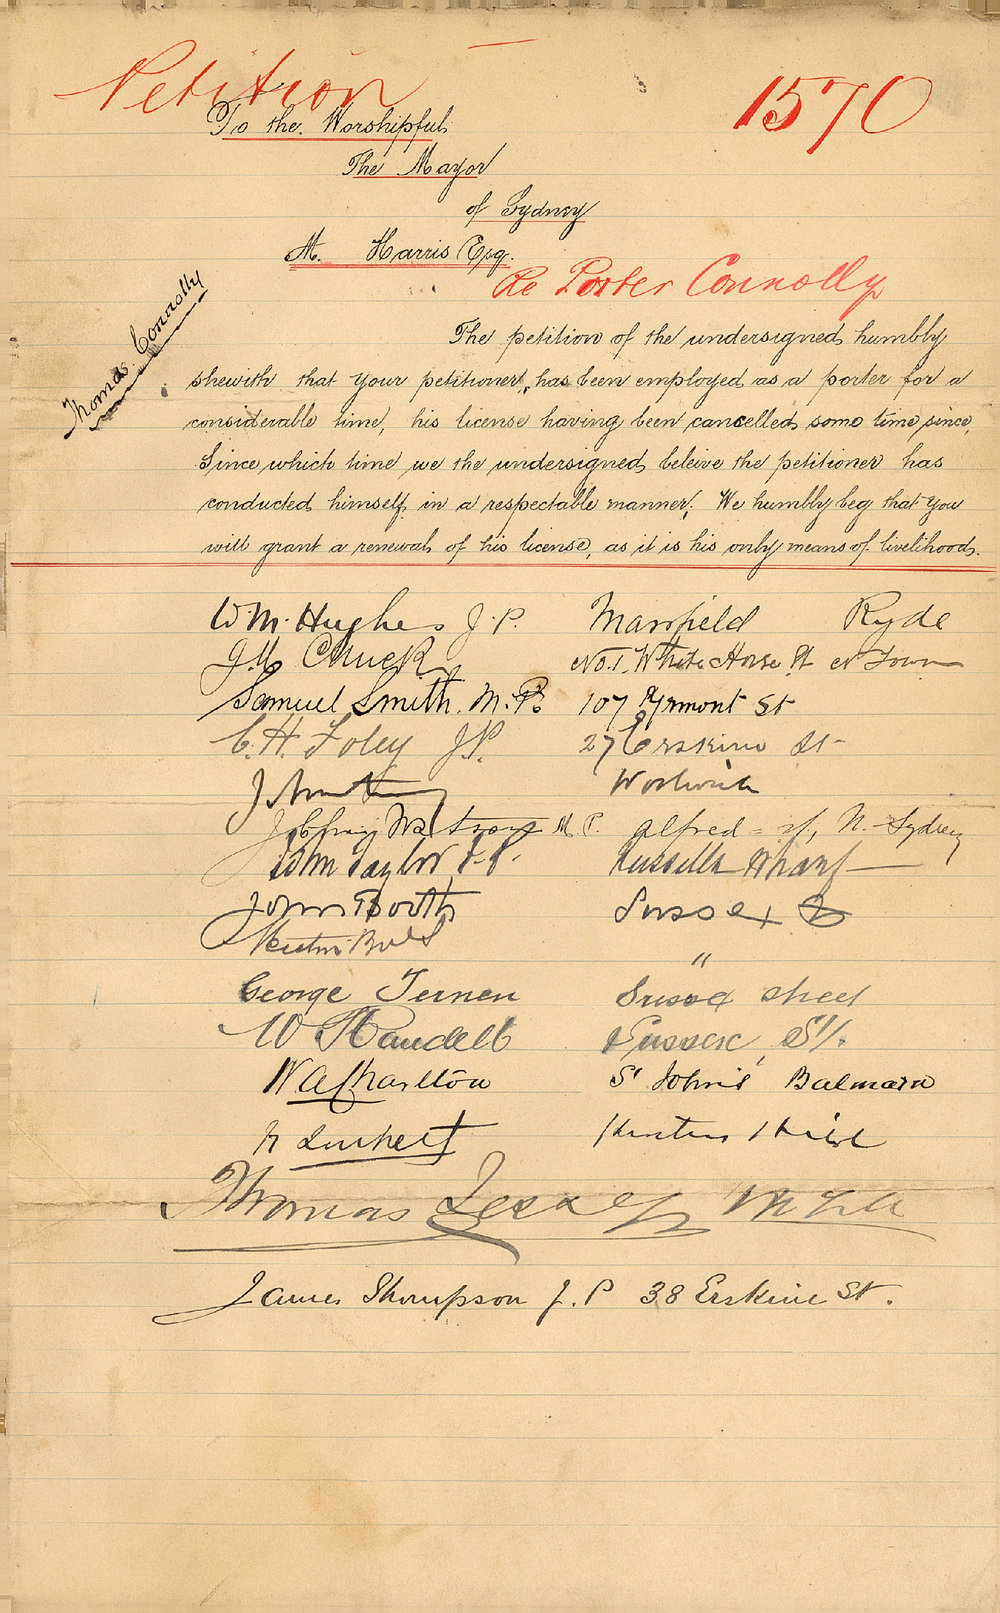 Petition
1570
To the Worshipful
The Mayor
of Sydney
M. Harris Esq.
Re Porter Connolly
Thomas Connolly
The petition of the undersigned humbly
shewith that your petitioner, has been employed as a porter for a
considerable time, his license having been cancelled some time since,
Since which time we the undersigned beleive the petitioner has
conducted himself in a respectable manner; We humbly beg that you
will grant a renewal of his license, as it is his only means of livelihood.
W. M. Hughes J.P. Marsfield Ryde
J.M. Chuck No. 1. White Horse St N Town
Samuel Smith. M.P. 107 Pyrmont St
C. H. Foley J.P. 27 Erskine St
Woolwich
M.P. Alfred st, N. Sydney
John Taylor J.P. Russells Wharf
John Booth Sussex St
"
George Sussex street
W Sussex St.
W A Charlton St John's Balmain
Hunters Hill
Thomas
James Thompson J.P 38 Erskine St.